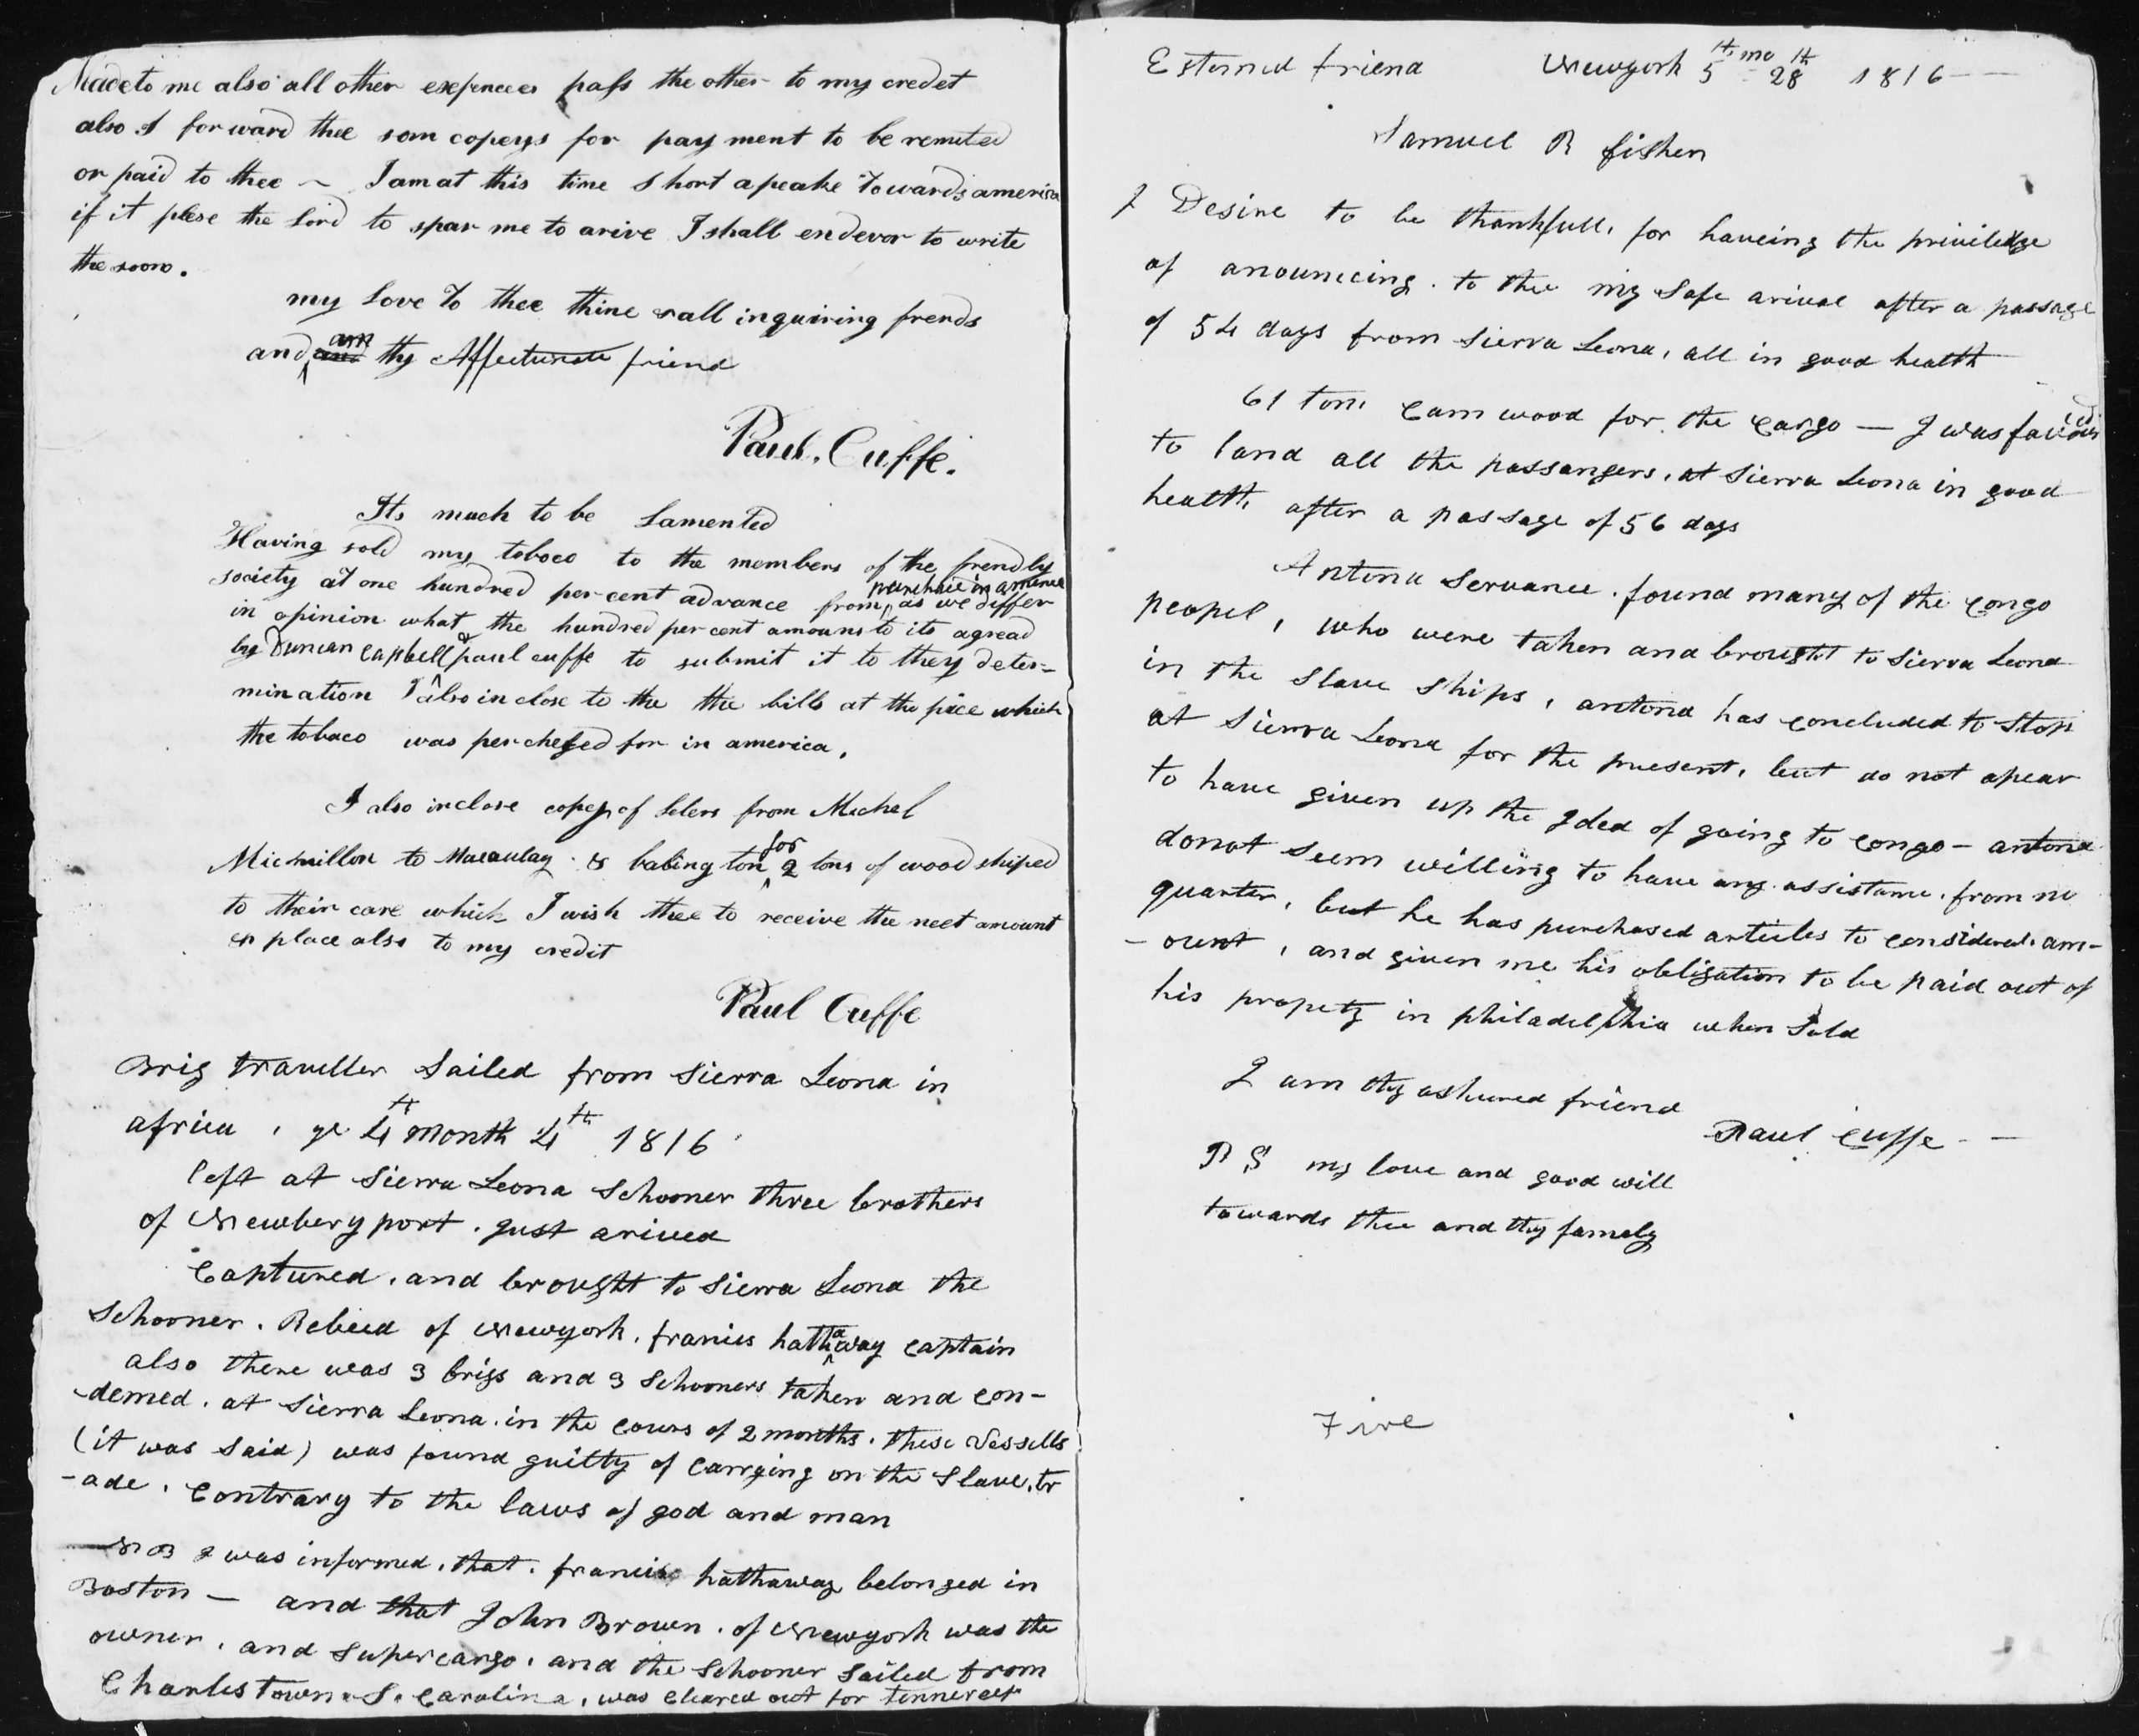 Made to me also all other expences pass the other to my credet
also I forward thee som copeys for pay ment to be remited
or paid to thee ~ I am at this time Short apeake Towards america
if it plese the Lord to spar me to arive I shall endevor to write
the soon.
my Love To thee thine & all inquiring frends
and am thy Affectunate friend
Paul. Cuffe.
Its much to be Lamented
Having sold my toboco to the members of the frendly
society at one hundred per cent advance from purchase in america as we differ
in opinion what the hundred per cent amouns to its agread
by Duncan Capbell & paul cuffe to submit it to they deter-
mination I also in close to the the bills at the price which
the tobaco was perchesed for in america,
I also inclose copey of leters from Michel
Micmillon to Macaulay & babington for 2 tons of wood shiped
to their care which I wish thee to receive the neet amount
& place also to my credit
Paul Cuffe
Brig traveller Sailed from Sierra Leona in
africa, ye 4th month 4th 1816
left at Sierra Leona Schooner three brothers
of Newbery port. Just arived
Captured, and brought to Sierra Leona the
Schooner. Rebeca of Newyork. francis hathaway captain
also there was 3 brigs and 3 Schooners taken and con-
-demed. at Sierra Leona. in the cours of 2 months. these Vessells
(it was Said) was found guilty of carrying on the Slave, tr
-ade. contrary to the laws of god and man
NB I was informed, that. francis hathaway belonged in
Boston — and that John Brown. of Newyork was the
owner, and Supercargo, and the Schooner Sailed from
Charlestown S. Carolina, was cleared out for
Estemed friend Newyork 5th mo 28th 1816
Samuel R fisher
I Desire to be thankfull, for haveing the priviledge
of anouncing. to thee my Safe arival after a passage
of 54 days from Sierra Leona, all in good health
61 tons Cam wood for the cargo — I was favoured
to land all the passangers, at Sierra Leona in good
health, after a passage of 56 days
Antona Servance. found many of the congo
peopel, who were taken and brought to Sierra Leona
in the Slave Ships, antona has concluded to Stop
at Sierra Leona for the present, but do not apear
to have given up the Idea of going to congo — antona
donot Seem willing to have any assistance. from no
quarter, but he has purchased articles to considerel. am-
-ount, and given me his obligation to be paid out of
his propety in philadelphia when Sold
I am thy ashured friend
Paul Cuffe
P S my love and good will
towards thee and thy famely
Five